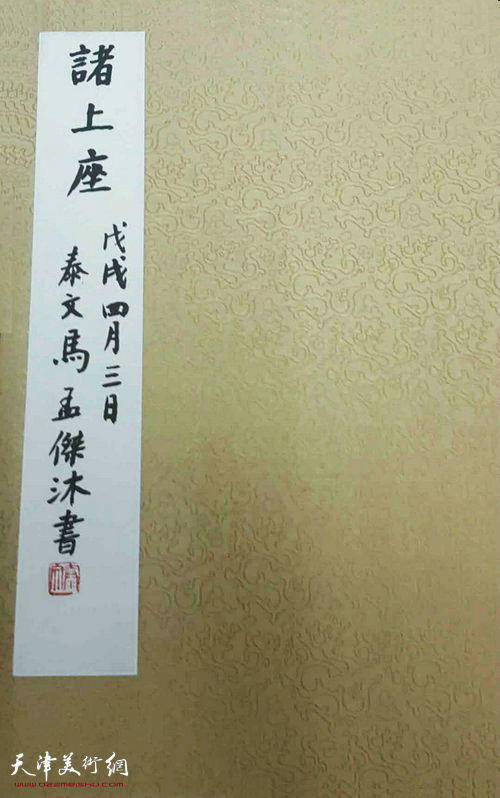 諸上座
戊戌四月三日
泰文馬孟傑沐書
天津美術網
www.022meishu.com